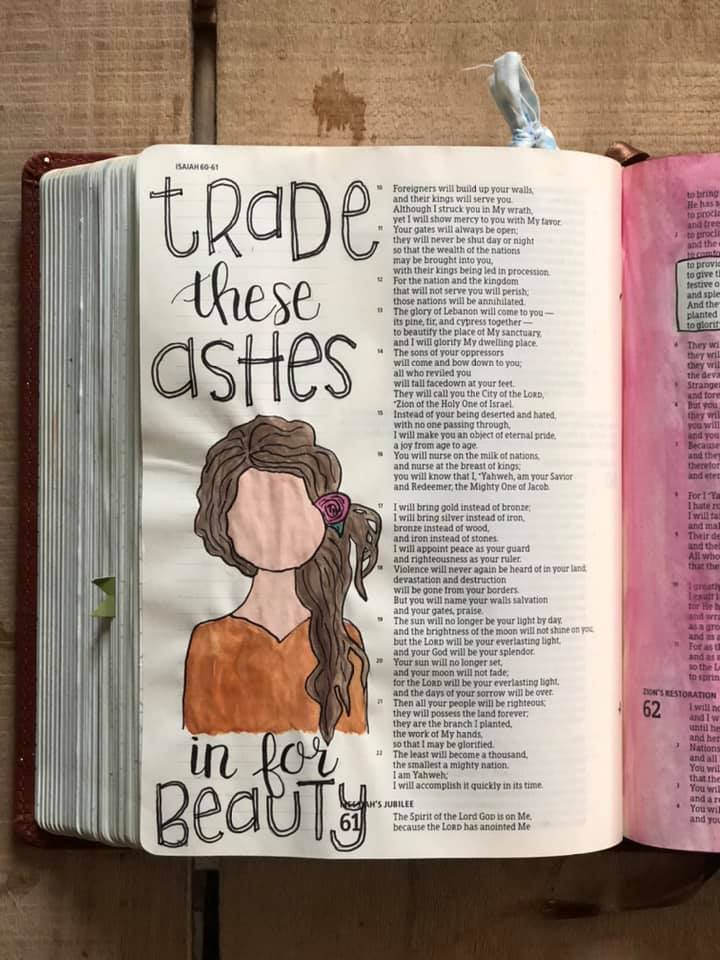 ISAIAH 60-61
tRaDe
these
asHes
in for
BeauTy
10 Foreigners will build up your walls,
and their kings will serve you.
Although I struck you in My wrath,
yet I will show mercy to you with My favor.
11 Your gates will always be open;
they will never be shut day or night
so that the wealth of the nations
may be brought into you,
with their kings being led in procession.
12 For the nation and the kingdom
that will not serve you will perish;
those nations will be annihilated.
13 The glory of Lebanon will come to you —
its pine, fir, and cypress together —
to beautify the place of My sanctuary,
and I will glorify My dwelling place.
14 The sons of your oppressors
will come and bow down to you;
all who reviled you
will fall facedown at your feet.
They will call you the City of the LORD,
*Zion of the Holy One of Israel.
15 Instead of your being deserted and hated,
with no one passing through,
I will make you an object of eternal pride,
a joy from age to age.
16 You will nurse on the milk of nations,
and nurse at the breast of kings;
you will know that I, *Yahweh, am your Savior
and Redeemer, the Mighty One of Jacob.
17 I will bring gold instead of bronze;
I will bring silver instead of iron,
bronze instead of wood,
and iron instead of stones.
I will appoint peace as your guard
and righteousness as your ruler.
18 Violence will never again be heard of in your land;
devastation and destruction
will be gone from your borders.
But you will name your walls salvation
and your gates, praise.
19 The sun will no longer be your light by day,
and the brightness of the moon will not shine on you;
but the LORD will be your everlasting light,
and your God will be your splendor.
20 Your sun will no longer set,
and your moon will not fade;
for the LORD will be your everlasting light,
and the days of your sorrow will be over.
21 Then all your people will be righteous;
they will possess the land forever;
they are the branch I planted,
the work of My hands,
so that I may be glorified.
22 The least will become a thousand,
the smallest a mighty nation.
I am Yahweh;
I will accomplish it quickly in its time.
MESSIAH'S JUBILEE
61 The Spirit of the Lord GOD is on Me,
because the LORD has anointed Me
to bring
He has s
to procl
and free
2 to procl
and the
to provid
to give t
festive o
and sple
And the
planted
to glorif
4 They wi
they wil
they wil
the deva
5 Strange
and fore
6 But you
they wil
you will
and you
7 Because
and they
therefor
and eter
8 For I *Ya
I hate ro
I will fai
and mak
9 Their de
and thei
All who
that the
10 I greatly
I exult i
for He h
and wra
as a gro
and as a
11 For as th
and as a
so the L
to sprin
ZION'S RESTORATION
62 I will no
and I w
until he
and her
2 Nations
and all
You wil
that the
3 You wil
and a r
4 You wil
and you